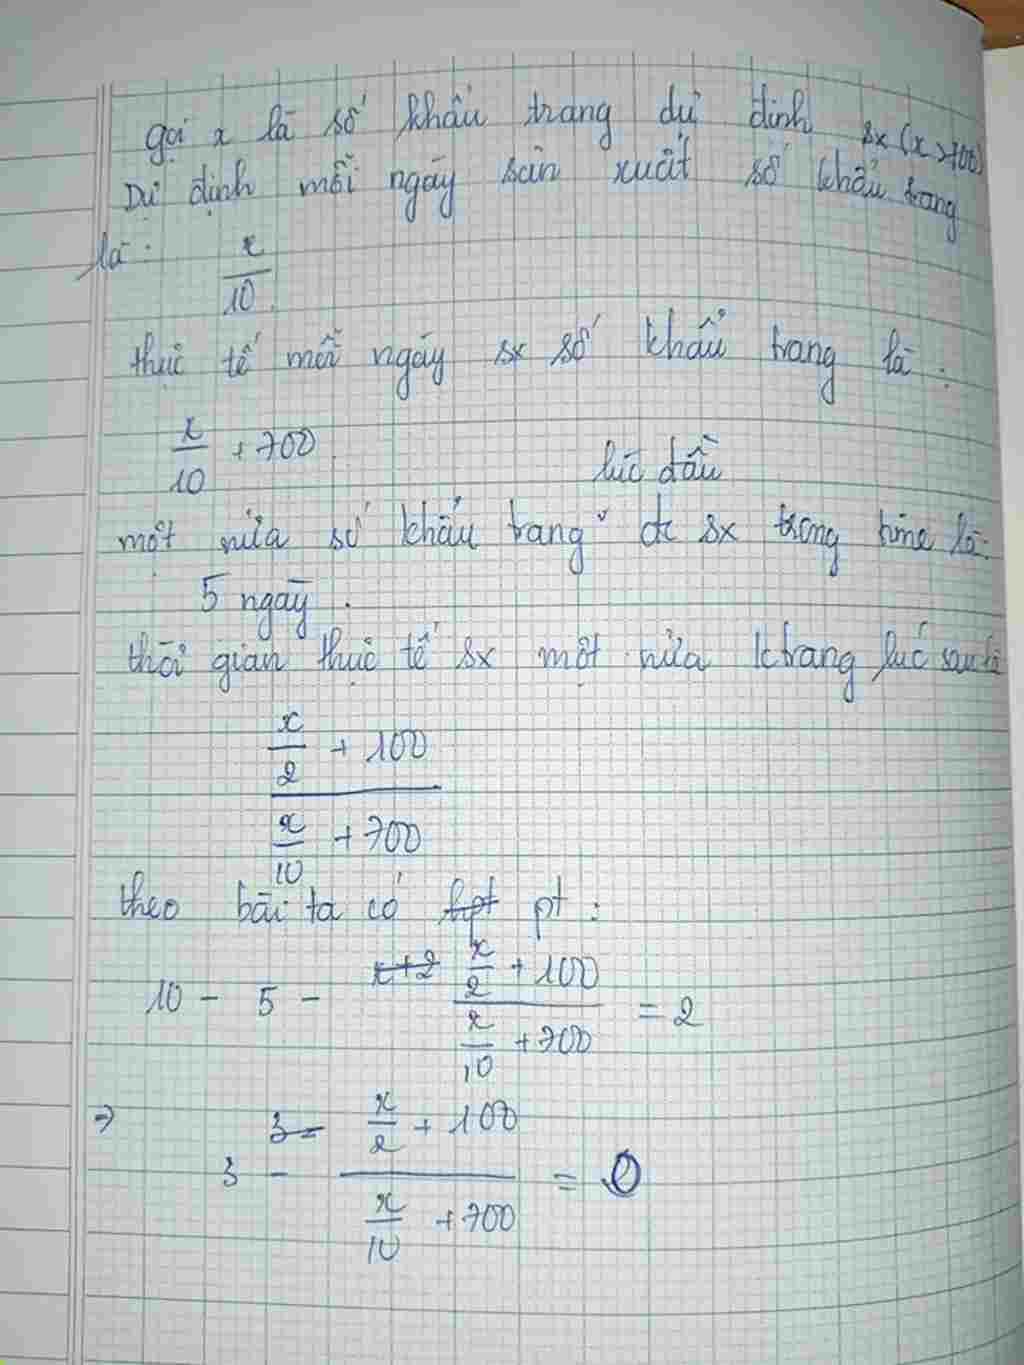 gọi x là số khẩu trang dự định sx (x>700)
Dự định mỗi ngày sản xuất số khẩu trang
là : x/10
thực tế mỗi ngày sx số khẩu trang là :
x/10 + 700
lúc đầu
một nửa số khẩu trang đc sx trong time là :
5 ngày .
thời gian thực tế sx một nửa ktrang lúc sau là
(x/2 + 100)/(x/10 + 700)
theo bài ta có pt :
10 - 5 - (x/2 + 100)/(x/10 + 700) = 2
=> 3 - (x/2 + 100)/(x/10 + 700) = 0